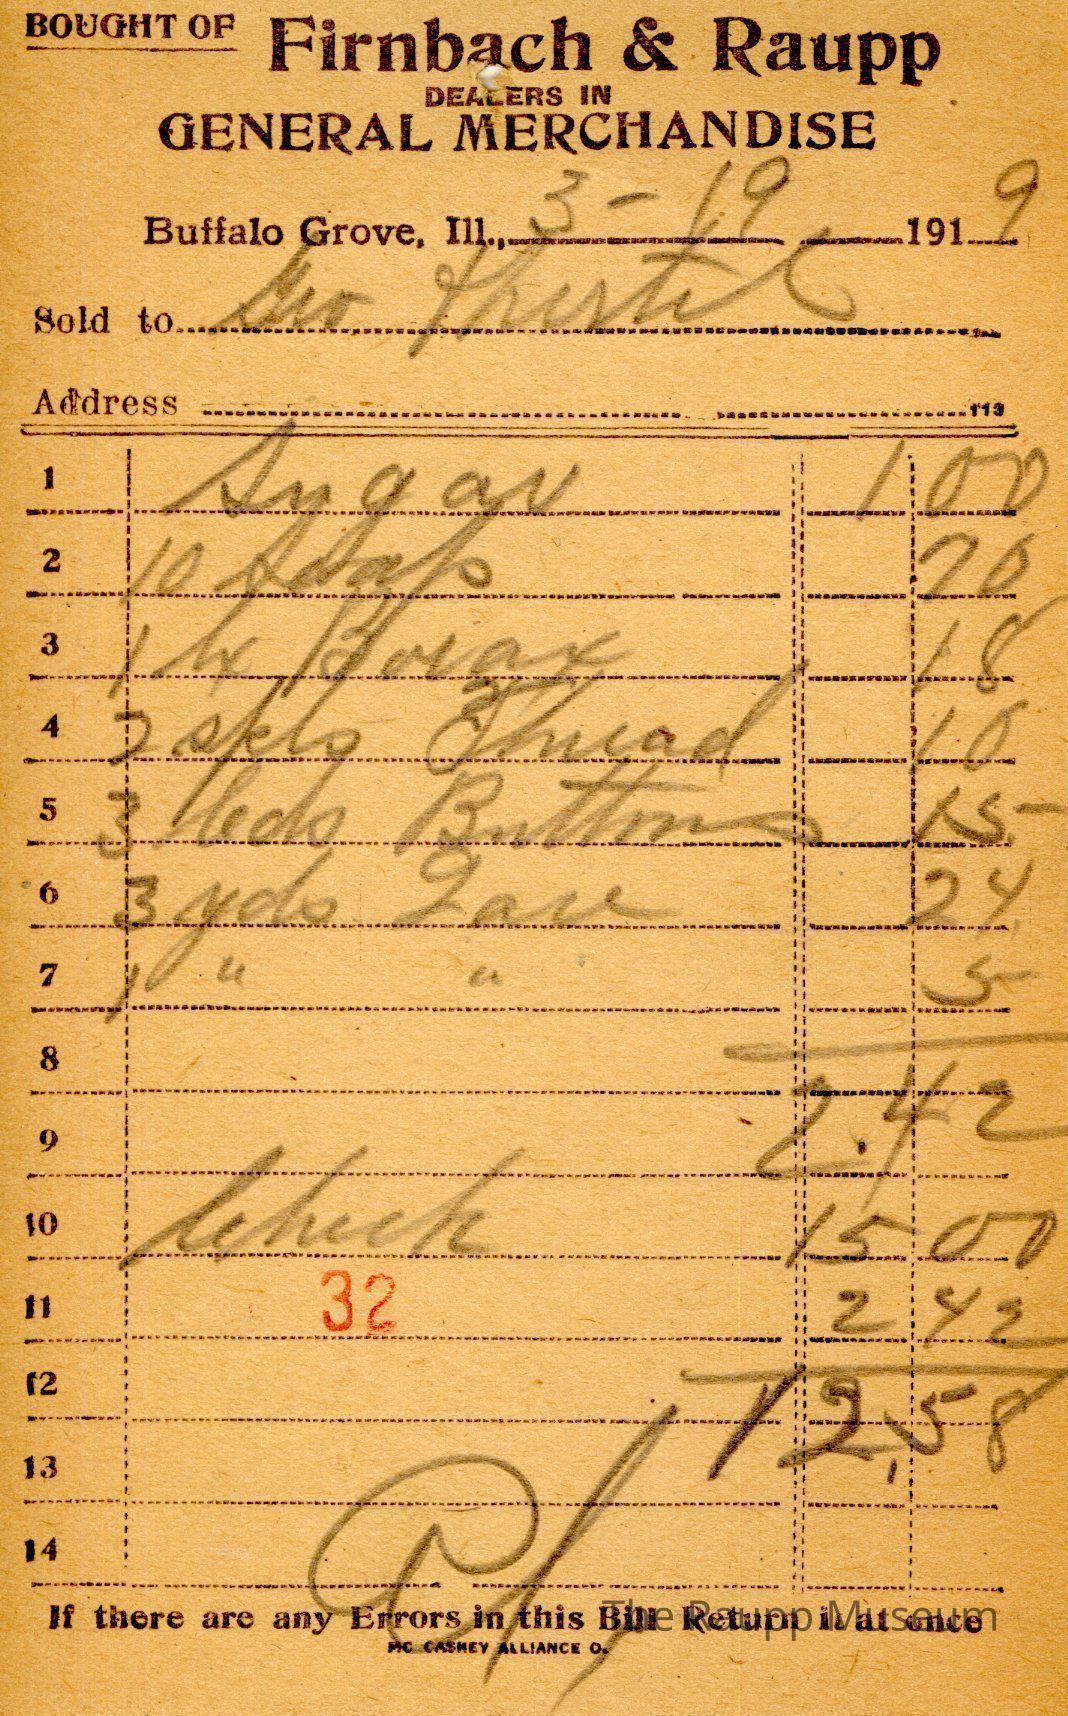 BOUGHT OF Firnbach & Raupp
DEALERS IN
GENERAL MERCHANDISE
Buffalo Grove, Ill., 3-19 1919
Sold to Geo
Address 113
1 Sugar 1 00
2 10 Soap 70
3 1 bx Borax 18
4 2 spls Thread 10
5 3 Buttons 15
6 3 yds Lace 24
7 1 " " 5
8
9 2.42
10 Check 15 00
11 32 2 42
12 12,58
13
14
If there are any Errors in this Bill Return it at once
MC CASKEY ALLIANCE O.
The Raupp Museum